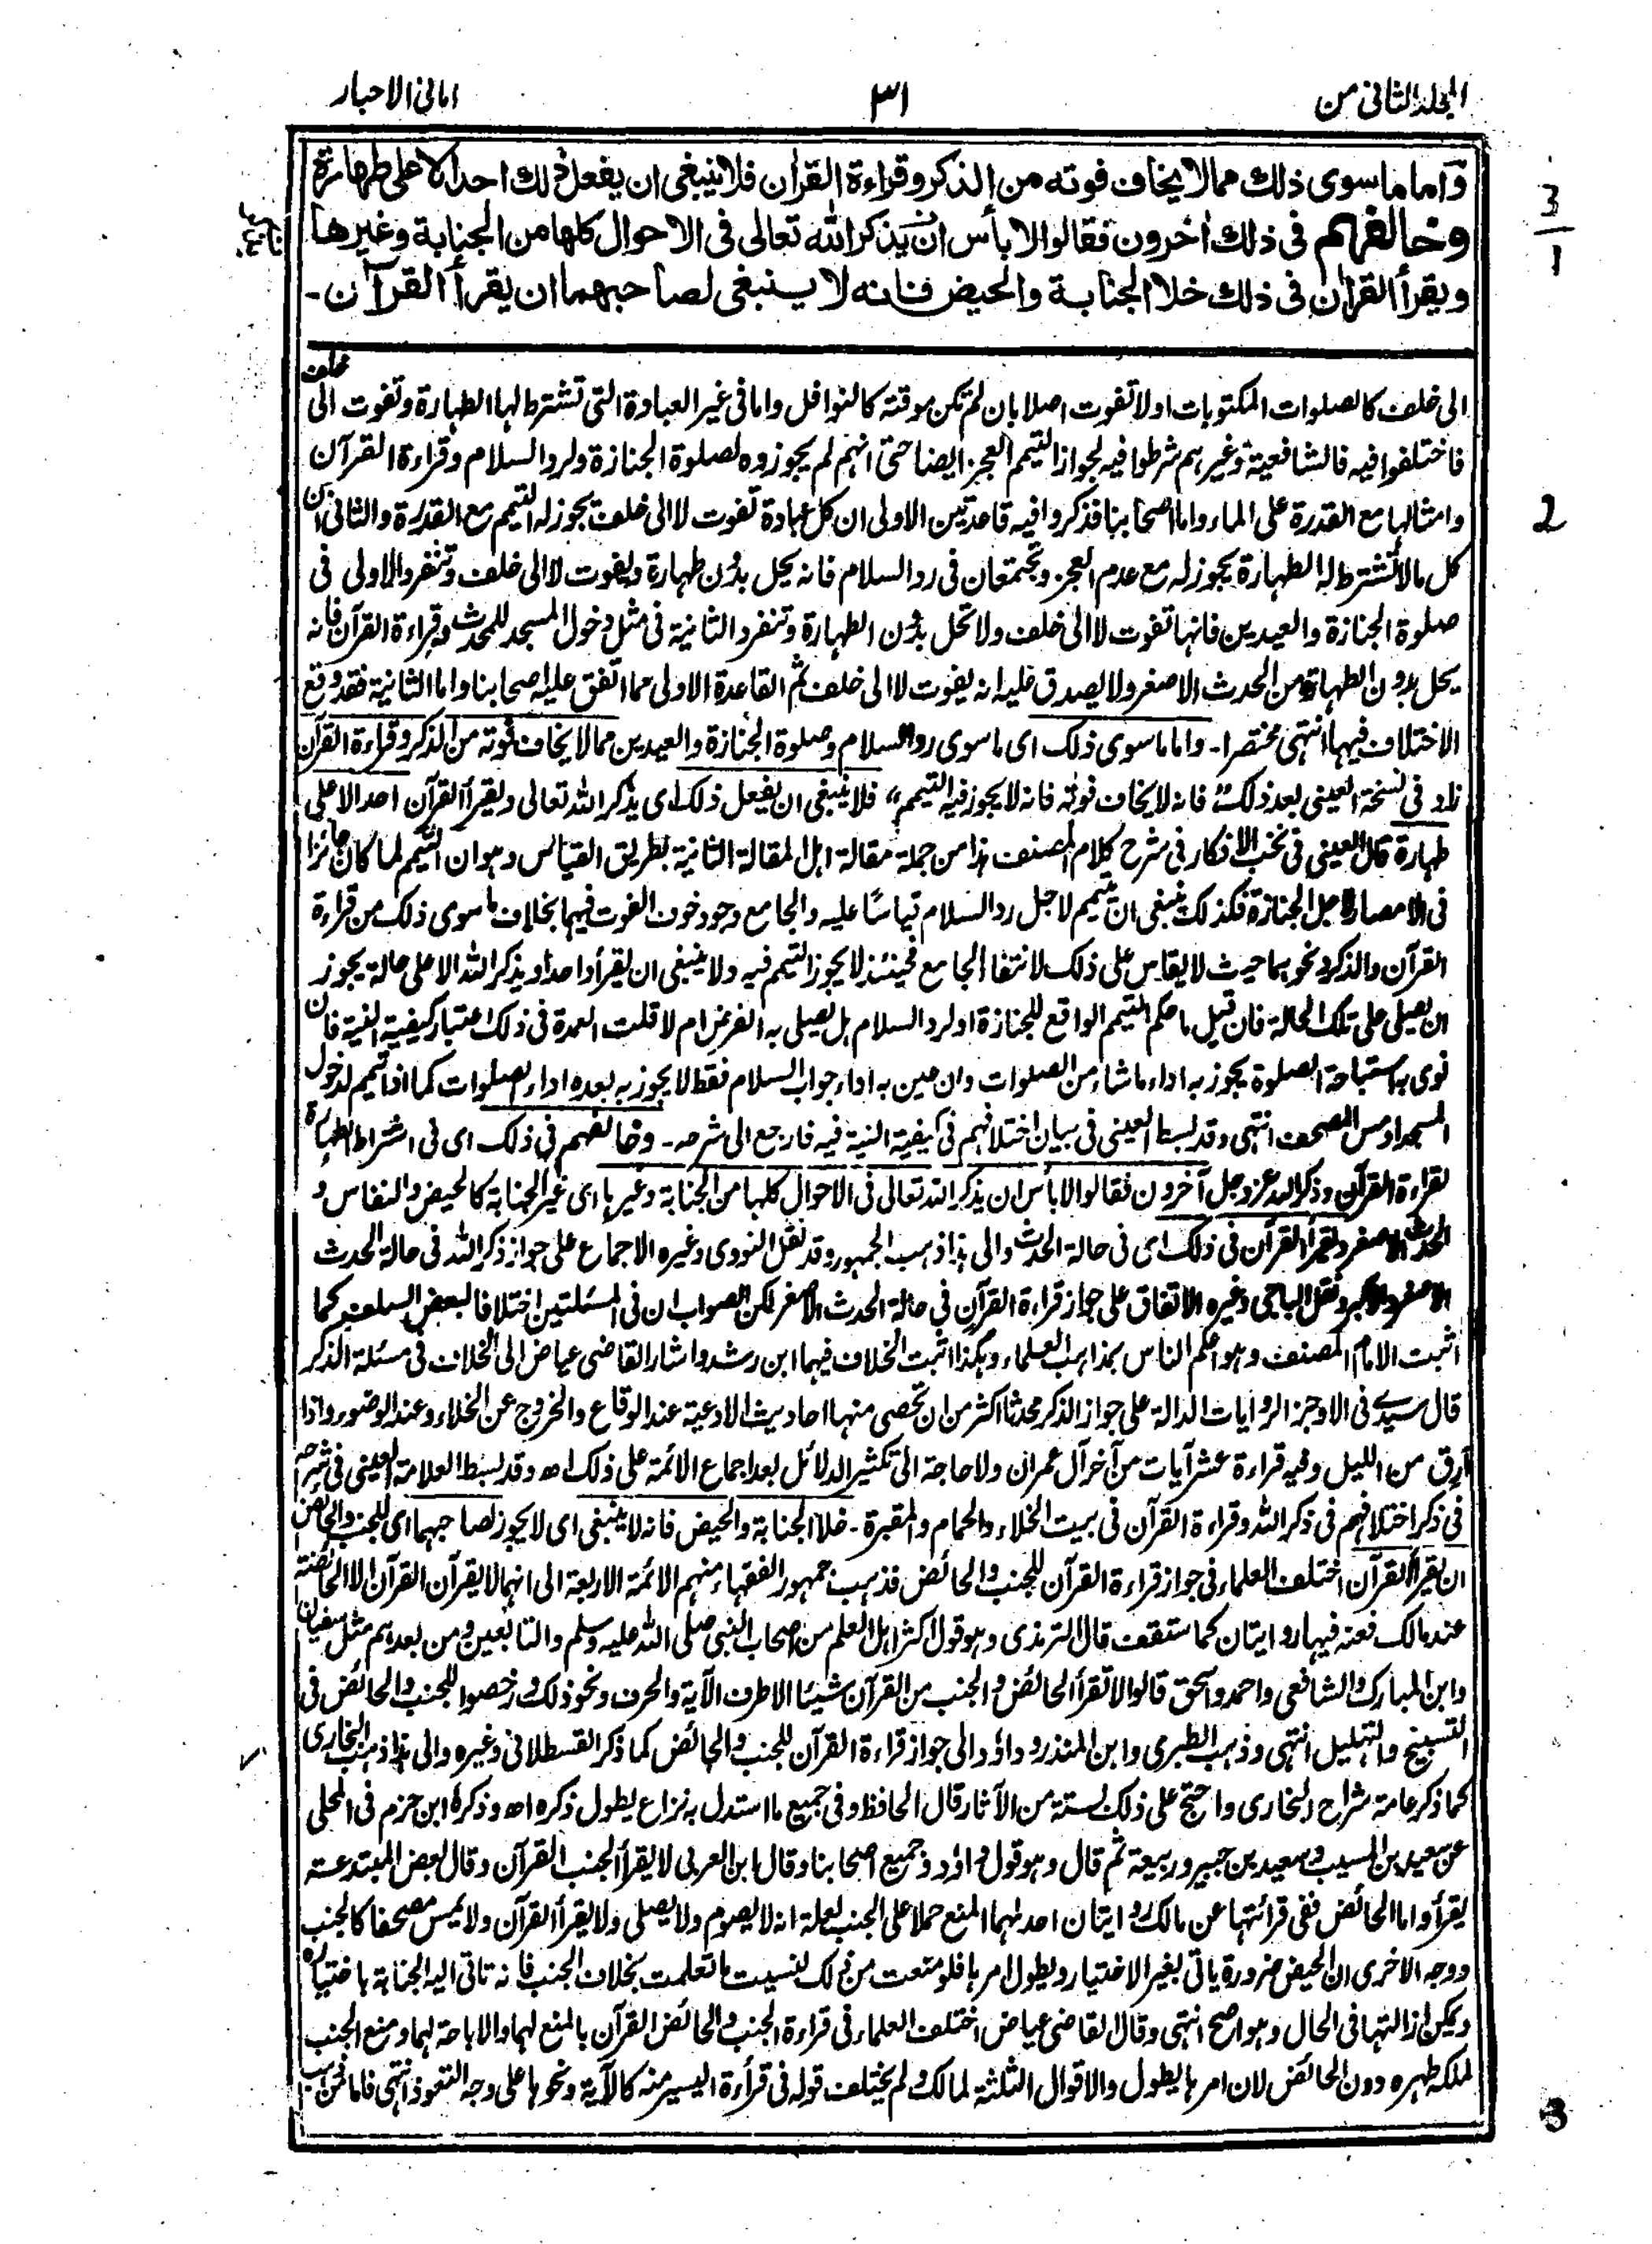 المجلد الثانى من
٣١
امانى الاحبار
وَاما ماسوى ذلك مما لا يخاف فوته من الذكر وقراءة القرأن فلا ينبغى ان يفعل ذلك احد الا على طهارة
وخالفهم فى ذلك أخرون فقالوا لا بأس ان يذكر الله تعالى فى الاحوال كلها من الجنابة وغيرها
ويقرأ القرأن فى ذلك خلا الجنابة والحيض فانه لا ينبغى لصاحبهما ان يقرأ القرآن-
الى خلف كالصلوات المكتوبات اولا تفوت اصلا بان لم تكن موقتة كالنوافل واما فى غير العبادة التى تشترط لها الطهارة وتفوت الى خلف
فاختلفوا فيه فالشافعية وغيرهم شرطوا فيه لجواز التيمم العجز ايضا حتى انهم لم يجوزوه لصلوة الجنازة ولرد السلام وقراءة القرآن
وامثالها مع القدرة على الماء واما اصحابنا فذكروا فيه قاعدتين الاولى ان كل عبادة تفوت لا الى خلف يجوز له التيمم مع القدرة والثانى ان
كل ما لا تشترط له الطهارة يجوز له مع عدم العجز وتجتمعان فى رد السلام فانه يحل بدون طهارة ويفوت لا الى خلف وتنفرد الاولى فى
صلوة الجنازة والعيدين فانها تفوت لا الى خلف ولا تحل بدون الطهارة وتنفرد الثانية فى مثل دخول المسجد للمحدث وقراءة القرآن فانه
يحل بدون الطهارة من الحدث الاصغر ولا يصدق عليه انه يفوت لا الى خلف ثم القاعدة الاولى مما اتفق عليه اصحابنا واما الثانية فقد وقع
الاختلاف فيها انتهى مختصرا- واما ماسوى ذلك اى ما سوى رد السلام وصلوة الجنازة والعيدين مما لا يخاف فوته من الذكر وقراءة القرآن
زاد فى نسخة العينى بعد ذلك "فانه لا يخاف فوته فانه لا يجوز فيه التيمم" فلا ينبغى ان يفعل ذلك اى يذكر الله تعالى ويقرأ القرآن احد الا على
طهارة قال العينى فى نخب الافكار فى شرح كلام المصنف هذا من جملة مقالة اهل المقالة الثانية بطريق القياس وهو ان التيمم لما كان جائزا
فى الامصار لاجل الجنازة فكذلك ينبغى ان يتيمم لاجل رد السلام قياسًا عليه والجامع وجود خوف الفوت فيهما بخلاف ما سوى ذلك من قراءة
القرآن والذكر ونحوهما حيث لا يقاس على ذلك لانتفا الجامع فحينئذ لا يجوز التيمم فيه ولا ينبغى ان يقرأ واحد او يذكر الله الا على حالة يجوز
ان يصلى على تلك الحالة فان قيل ما حكم التيمم الواقع للجنازة او لرد السلام هل يصلى به الفرض ام لا قلت العمدة فى ذلك اعتبار كيفية النية فان
نوى به استباحة الصلوة يجوز به اداء ما شاء من الصلوات وان عين به اداء جواب السلام فقط لا يجوز به بعده اداء الصلوات كما اذا تيمم لدخول
المسجد او مس المصحف انتهى وقد بسط العينى فى بيان اختلافهم فى كيفية النية فيه فارجع الى شرحه- وخالفهم فى ذلك اى فى اشتراط الطهارة
لقراءة القرآن وذكر الله عز وجل آخرون فقالوا لا بأس ان يذكر الله تعالى فى الاحوال كلها من الجنابة وغيرها اى غير الجنابة كالحيض والنفاس و
الحدث الاصغر ويقرأ القرآن فى ذلك اى فى حالة الحدث والى هذا ذهب الجمهور وقد نقل النووى وغيره الاجماع على جواز ذكر الله فى حالة الحدث
الاصغر والاكبر ونقل الباجى وغيره الاتفاق على جواز قراءة القرآن فى حالة الحدث الاصغر لكن الصواب ان فى المسئلتين اختلافا لبعض السلف كما
اثبت الامام المصنف وهو اعلم الناس بمذاهب العلماء وهكذا اثبت الخلاف فيهما ابن رشد واشار القاضى عياض الى الخلاف فى مسئلة الذكر
قال سيدى فى الاوجز الروايات الدالة على جواز الذكر محدثا اكثر من ان تحصى منها احاديث الادعية عند الوقاع والخروج عن الخلاء وعند الوضوء واذا
أرِق من الليل وفيه قراءة عشر آيات من آخر آل عمران ولا حاجة الى تكثير الدلائل بعد اجماع الائمة على ذلك اه وقد بسط العلامة العينى فى شرحه
فى ذكر اختلافهم فى ذكر الله وقراءة القرآن فى بيت الخلاء والحمام والمقبرة- خلا الجنابة والحيض فانه لا ينبغى اى لا يجوز لصاحبهما اى للجنب والحائض
ان يقرأ القرآن اختلف العلماء فى جواز قراءة القرآن للجنب والحائض فذهب جمهور الفقهاء منهم الائمة الاربعة الى انهما لا يقرآن القرآن الا الحائضة
عند مالك فعنه فيها روايتان كما ستقف قال الترمذى وهو قول اكثر اهل العلم من اصحاب النبى صلى الله عليه وسلم والتابعين ومن بعدهم مثل سفيان
وابن المبارك والشافعى واحمد واسحق قالوا لا تقرأ الحائض والجنب من القرآن شيئا الا طرف الآية والحرف ونحو ذلك ورخصوا للجنب والحائض فى
التسبيح والتهليل انتهى وذهب الطبرى وابن المنذر وداؤد الى جواز قراءة القرآن للجنب والحائض كما ذكر القسطلانى وغيره والى هذا ذهب البخارى
كما ذكر عامة شراح البخارى واحتج على ذلك بستة من الآثار قال الحافظ وفى جميع ما استدل به نزاع يطول ذكره اه وذكره ابن حزم فى المحلى
عن سعيد بن المسيب وسعيد بن جبير وربيعة ثم قال وهو قول داؤد وجميع اصحابنا وقال ابن العربى لا يقرأ الجنب القرآن وقال بعض المبتدعة
يقرأ واما الحائض ففى قرائتها عن مالك روايتان احدٰهما المنع حملا على الجنب لعلة انه لا يصوم ولا يصلى ولا يقرأ القرآن ولا يمس مصحفا كالجنب
ووجه الاخرى ان الحيض ضرورة ياتى بغير الاختيار ويطول امرها فلو منعت من ذلك لنسيت ما تعلمت بخلاف الجنب فانه تاتى اليه الجنابة باختياره
ويمكن ازالتها فى الحال وهو اصح انتهى وقال القاضى عياض اختلف العلماء فى قراءة الجنب والحائض القرآن بالمنع لهما والاباحة لهما ومنع الجنب
لملكه طهره دون الحائض لان امرها يطول والاقوال الثلثة لمالك ولم يختلف قوله فى قرأءة اليسير منه كالآية ونحوها على وجه التعوذ انتهى فاما
3
1
2
3